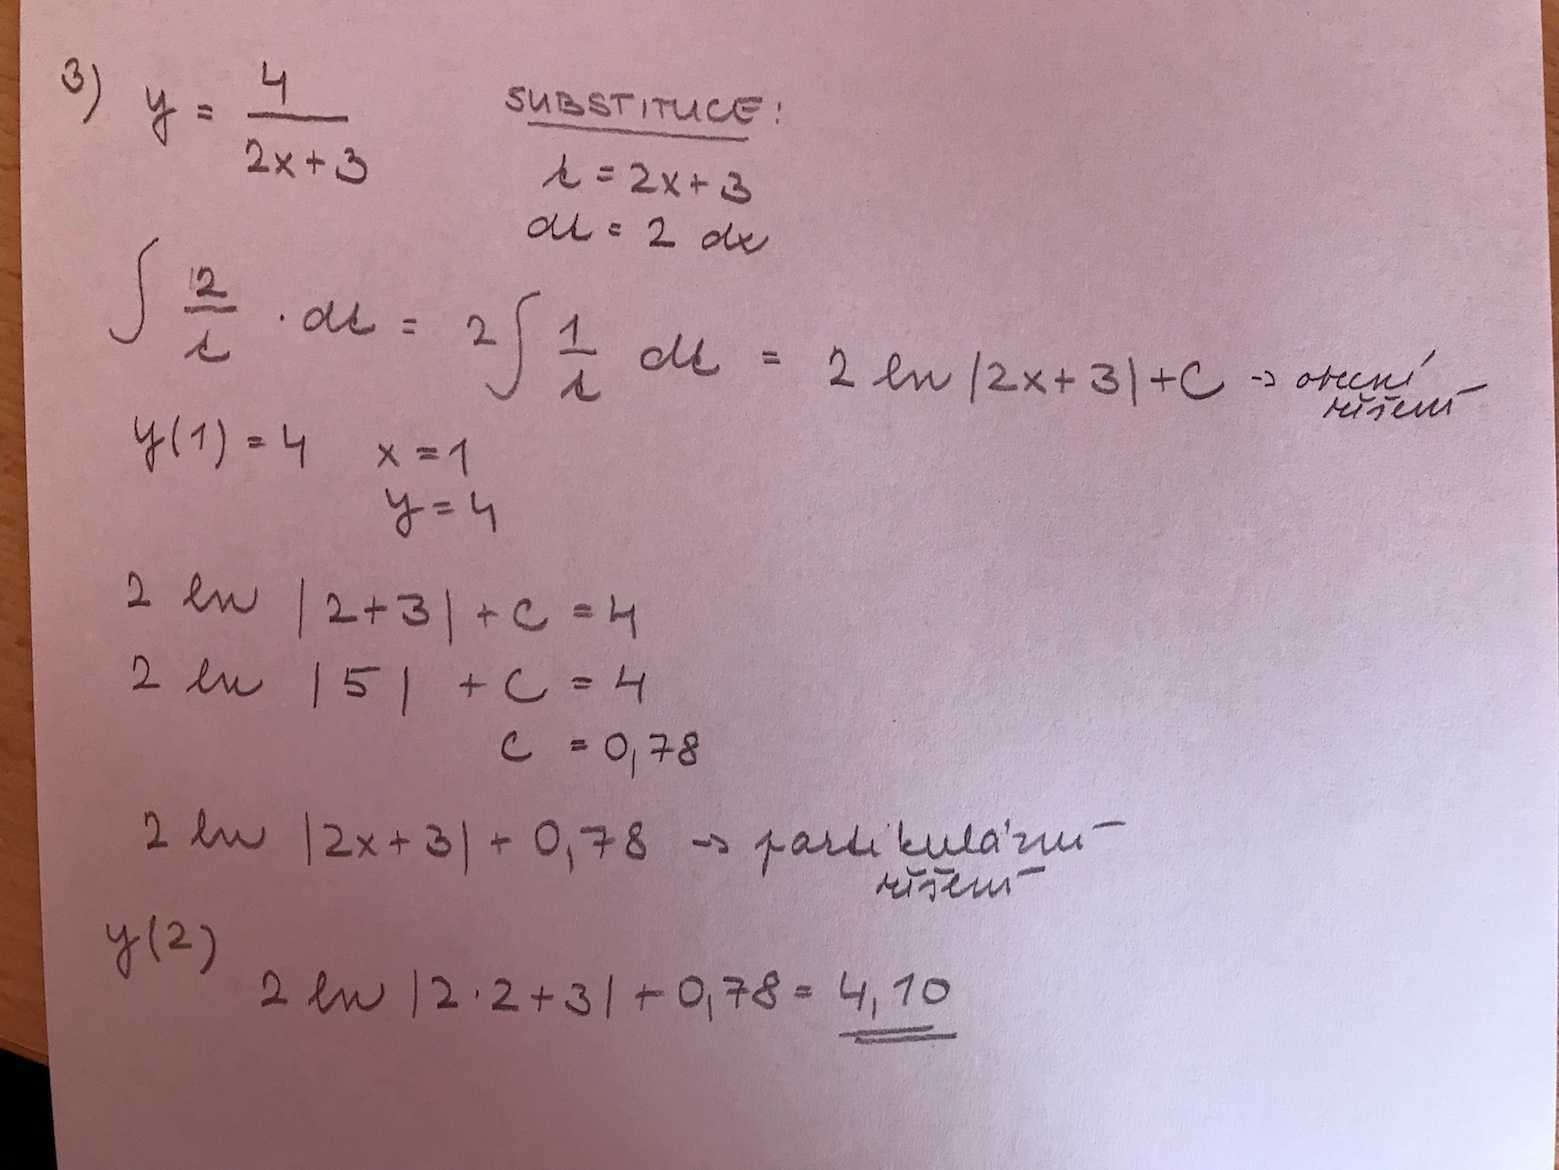 3) y = 4/(2x+3)
SUBSTITUCE:
t = 2x+3
dt = 2 dx
∫ 2/t · dt = 2 ∫ 1/t dt = 2 ln |2x+3| + C → obecní řešení
y(1) = 4 x = 1
y = 4
2 ln |2+3| + C = 4
2 ln |5| + C = 4
C = 0,78
2 ln |2x+3| + 0,78 → partikulární řešení
y(2)
2 ln |2·2+3| + 0,78 = 4,10